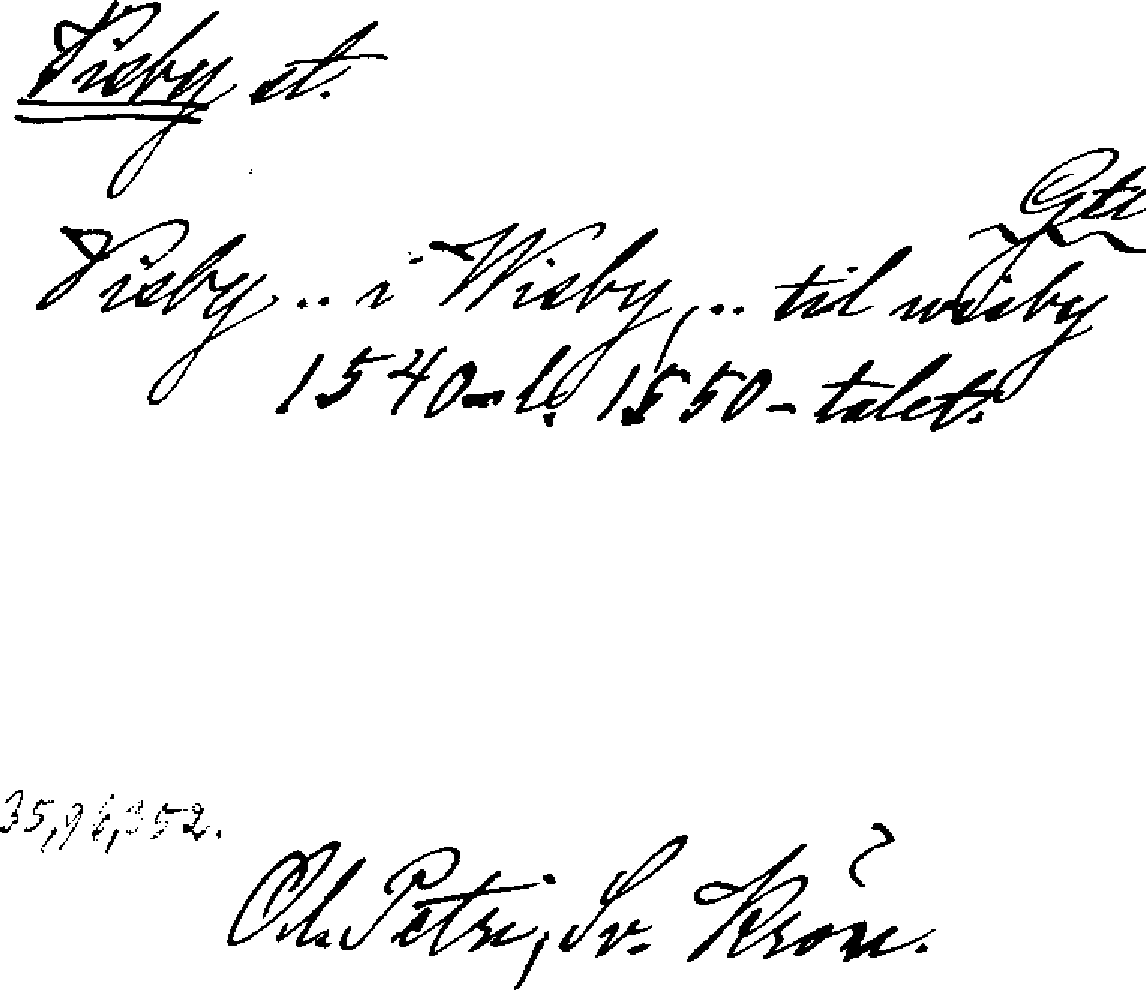 Visby st.
Gtl
Visby .. i Wisby, .. til wisby
1540- l. 1550-talet.
35, 96, 352.
Ol. Petri, Sv. Krön.